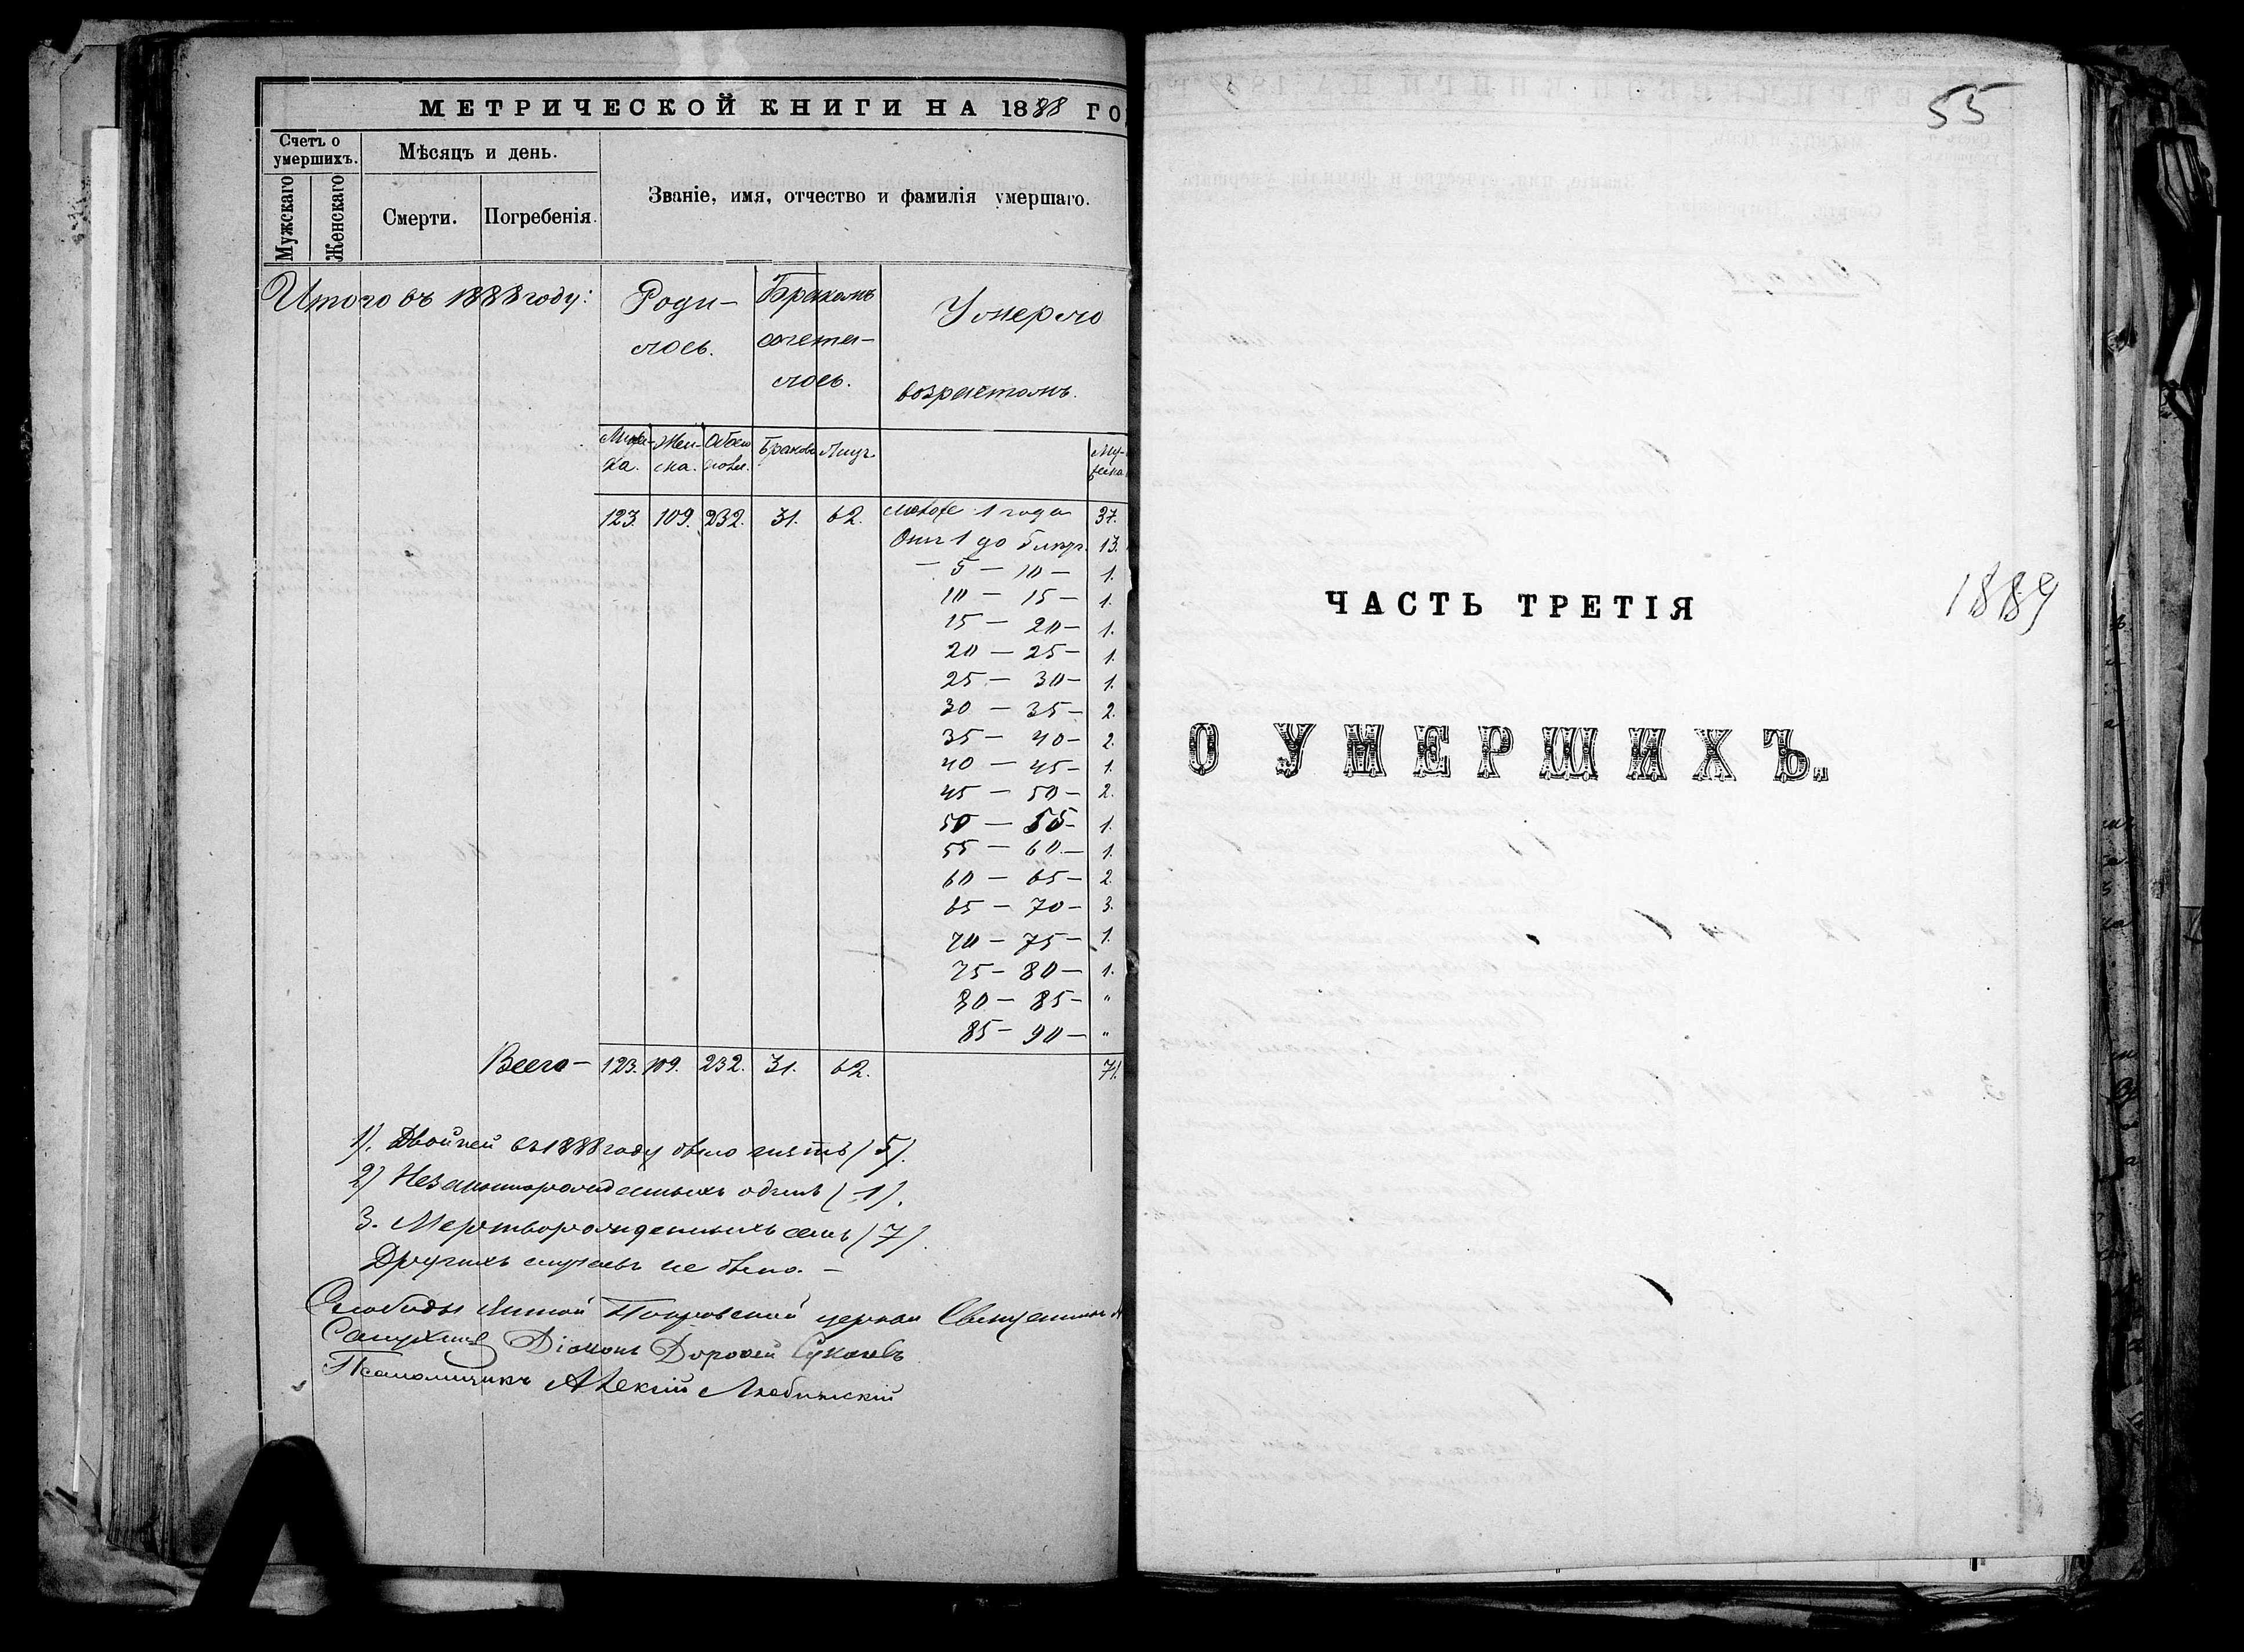 МЕТРИЧЕСКОЙ КНИГИ НА 1888 ГО
Счетъ о умершихъ.
Мѣсяцъ и день.
Званіе, имя, отчество и фамилія умершаго.
Мужскаго
Женскаго
Смерти.
Погребенія.
Итого въ 1888 году:
Роди-
лось.
Бракомъ
сочета-
лось.
Умерло
возрастомъ.
Муже-
ска.
Жен-
ска.
Обоего
Браковъ
Лицъ
Му-
жеска
123. 109. 232. 31. 62. 1 года 37.
Отъ 1 до 5 лѣтъ. 13.
— 5 — 10 — 1.
10 — 15 — 1.
15 — 20 — 1.
20 — 25 — 1.
25 — 30 — 1.
30 — 35 — 2.
35 — 40 — 2.
40 — 45 — 1.
45 — 50 — 2.
50 — 55 — 1.
55 — 60 — 1.
60 — 65 — 2.
65 — 70 — 3.
70 — 75 — 1.
75 — 80 — 1.
80 — 85 — "
85 — 90 — "
Всего — 123. 109. 232. 31. 62. 71.
1). Двойней въ 1888 году было пять (5).
2) Незаконнорожденныхъ одинъ (1).
3. Мертворожденныхъ семь (7).
Другихъ случаевъ не было. —
Слободы Покровской церкви Священникъ
Діаконъ Дороѳей
Псаломщикъ Алексій
55
ЧАСТЬ ТРЕТІЯ
1889
О УМЕРШИХЪ.